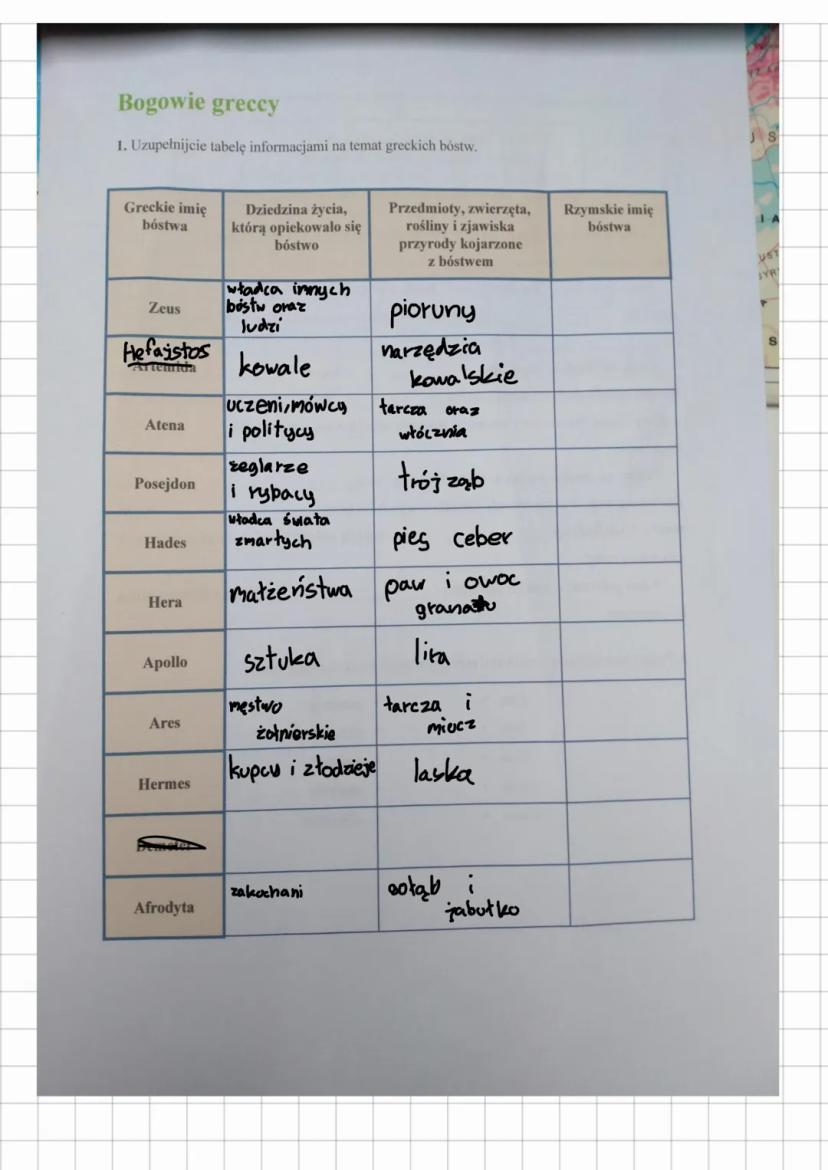 Bogowie greccy
1. Uzupełnijcie tabelę informacjami na temat greckich bóstw.
Greckie imię
bóstwa
Dziedzina życia,
którą opiekowało się
bóstwo
Przedmioty, zwierzęta,
rośliny i zjawiska
przyrody kojarzone
z bóstwem
Rzymskie imię
bóstwa
Zeus
władca innych
bóstw oraz
ludzi
pioruny
Hefajstos
Artemida
kowale
narzędzia
kowalskie
Atena
uczeni, mówcy
i politycy
tarcza oraz
włócznia
Posejdon
żeglarze
i rybacy
trójząb
Hades
władca świata
zmarłych
pies ceber
Hera
małżeństwa
paw i owoc
granatu
Apollo
sztuka
lira
Ares
męstwo
żołnierskie
tarcza i
miecz
Hermes
kupcy i złodzieje
laska
Demeter
Afrodyta
zakochani
gołąb i
jabłko